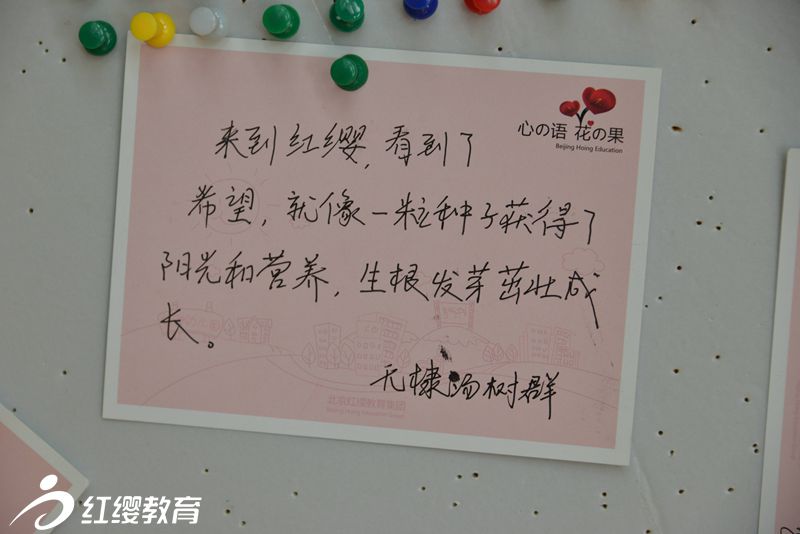 心の语 花の果
Beijing Hoing Education
来到红缨,看到了
希望,就像一粒种子获得了
阳光和营养,生根发芽茁壮成
长。
无棣汤树群
北京红缨教育集团
Beijing Hoing Education Group
红缨教育